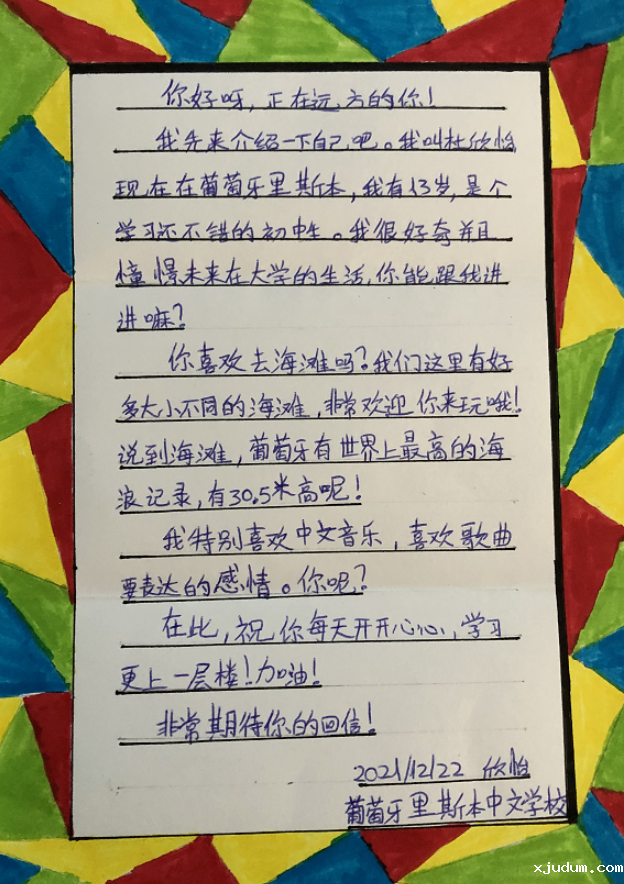 你好呀，正在远方的你！
我先来介绍一下自己吧。我叫杜欣怡，
现在在葡萄牙里斯本，我有13岁，是个
学习还不错的初中生。我很好奇并且
憧憬未来在大学的生活，你能跟我讲
讲嘛？
你喜欢去海滩吗？我们这里有好
多大小不同的海滩，非常欢迎你来玩哦！
说到海滩，葡萄牙有世界上最高的海
浪记录，有30.5米高呢！
我特别喜欢中文音乐，喜欢歌曲
要表达的感情。你呢？
在此，祝你每天开开心心，学习
更上一层楼！加油！
非常期待你的回信！
2021/12/22 欣怡
葡萄牙里斯本中文学校
xjudum.com